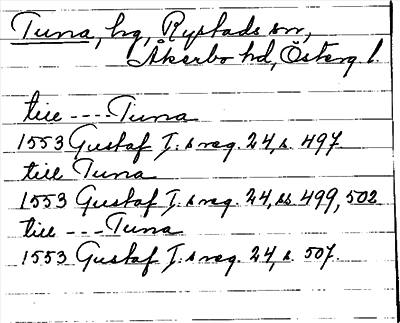 Tuna, by, Rystads sn,
Åkerbo hd, Österg. l.
till ---- Tuna
1553 Gustaf I:s reg. 24, s. 497.
till Tuna
1553 Gustaf I:s reg. 24, ss 499, 502
till --- Tuna
1553 Gustaf I:s reg. 24, s. 507.